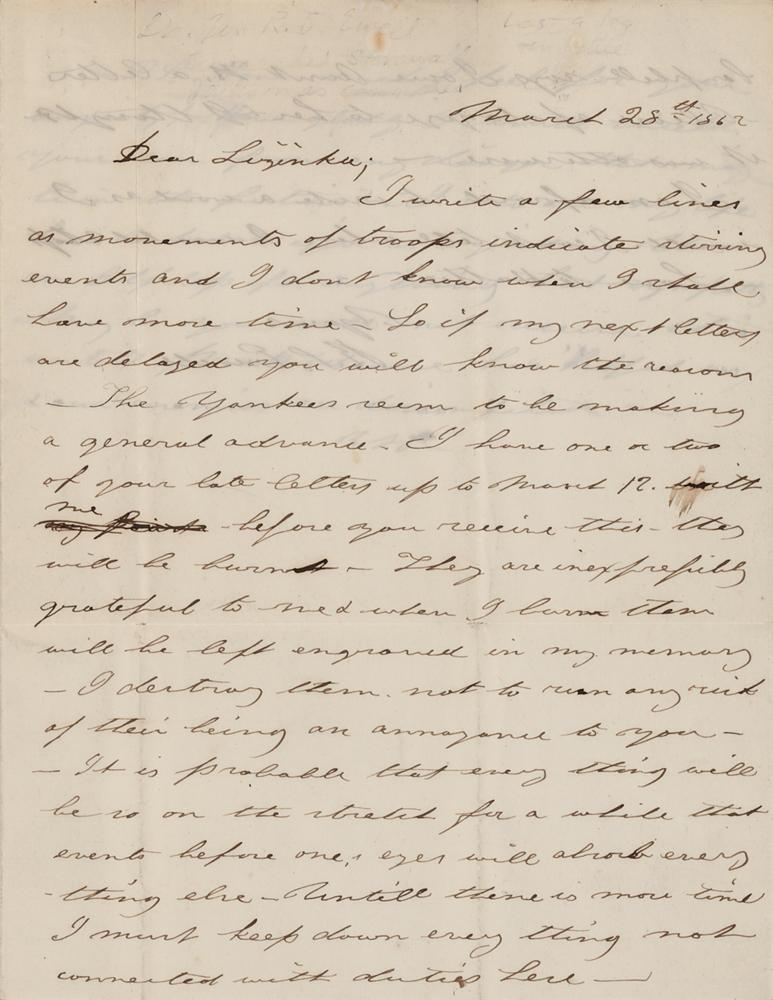 March 28th 1862
Dear Lizinka;
I write a few lines
as movements of troops indicate stirring
events and I dont know when I shall
have more time - So if my next letters
are delayed you will know the reason
- The Yankees seem to be making
a general advance - I have one or two
of your late letters up to March 12. with
me
before you receive this - they
will be burnt - They are inexpressibly
grateful to me & when I burn them
will be left engraved in my memory
- I destroy them not to run any risk
of their being an annoyance to you -
- It is probable that every thing will
be so on the stretch for a while that
events before one,s eyes will absorb every
-thing else - Untill there is more time
I must keep down every thing not
connected with duties here -